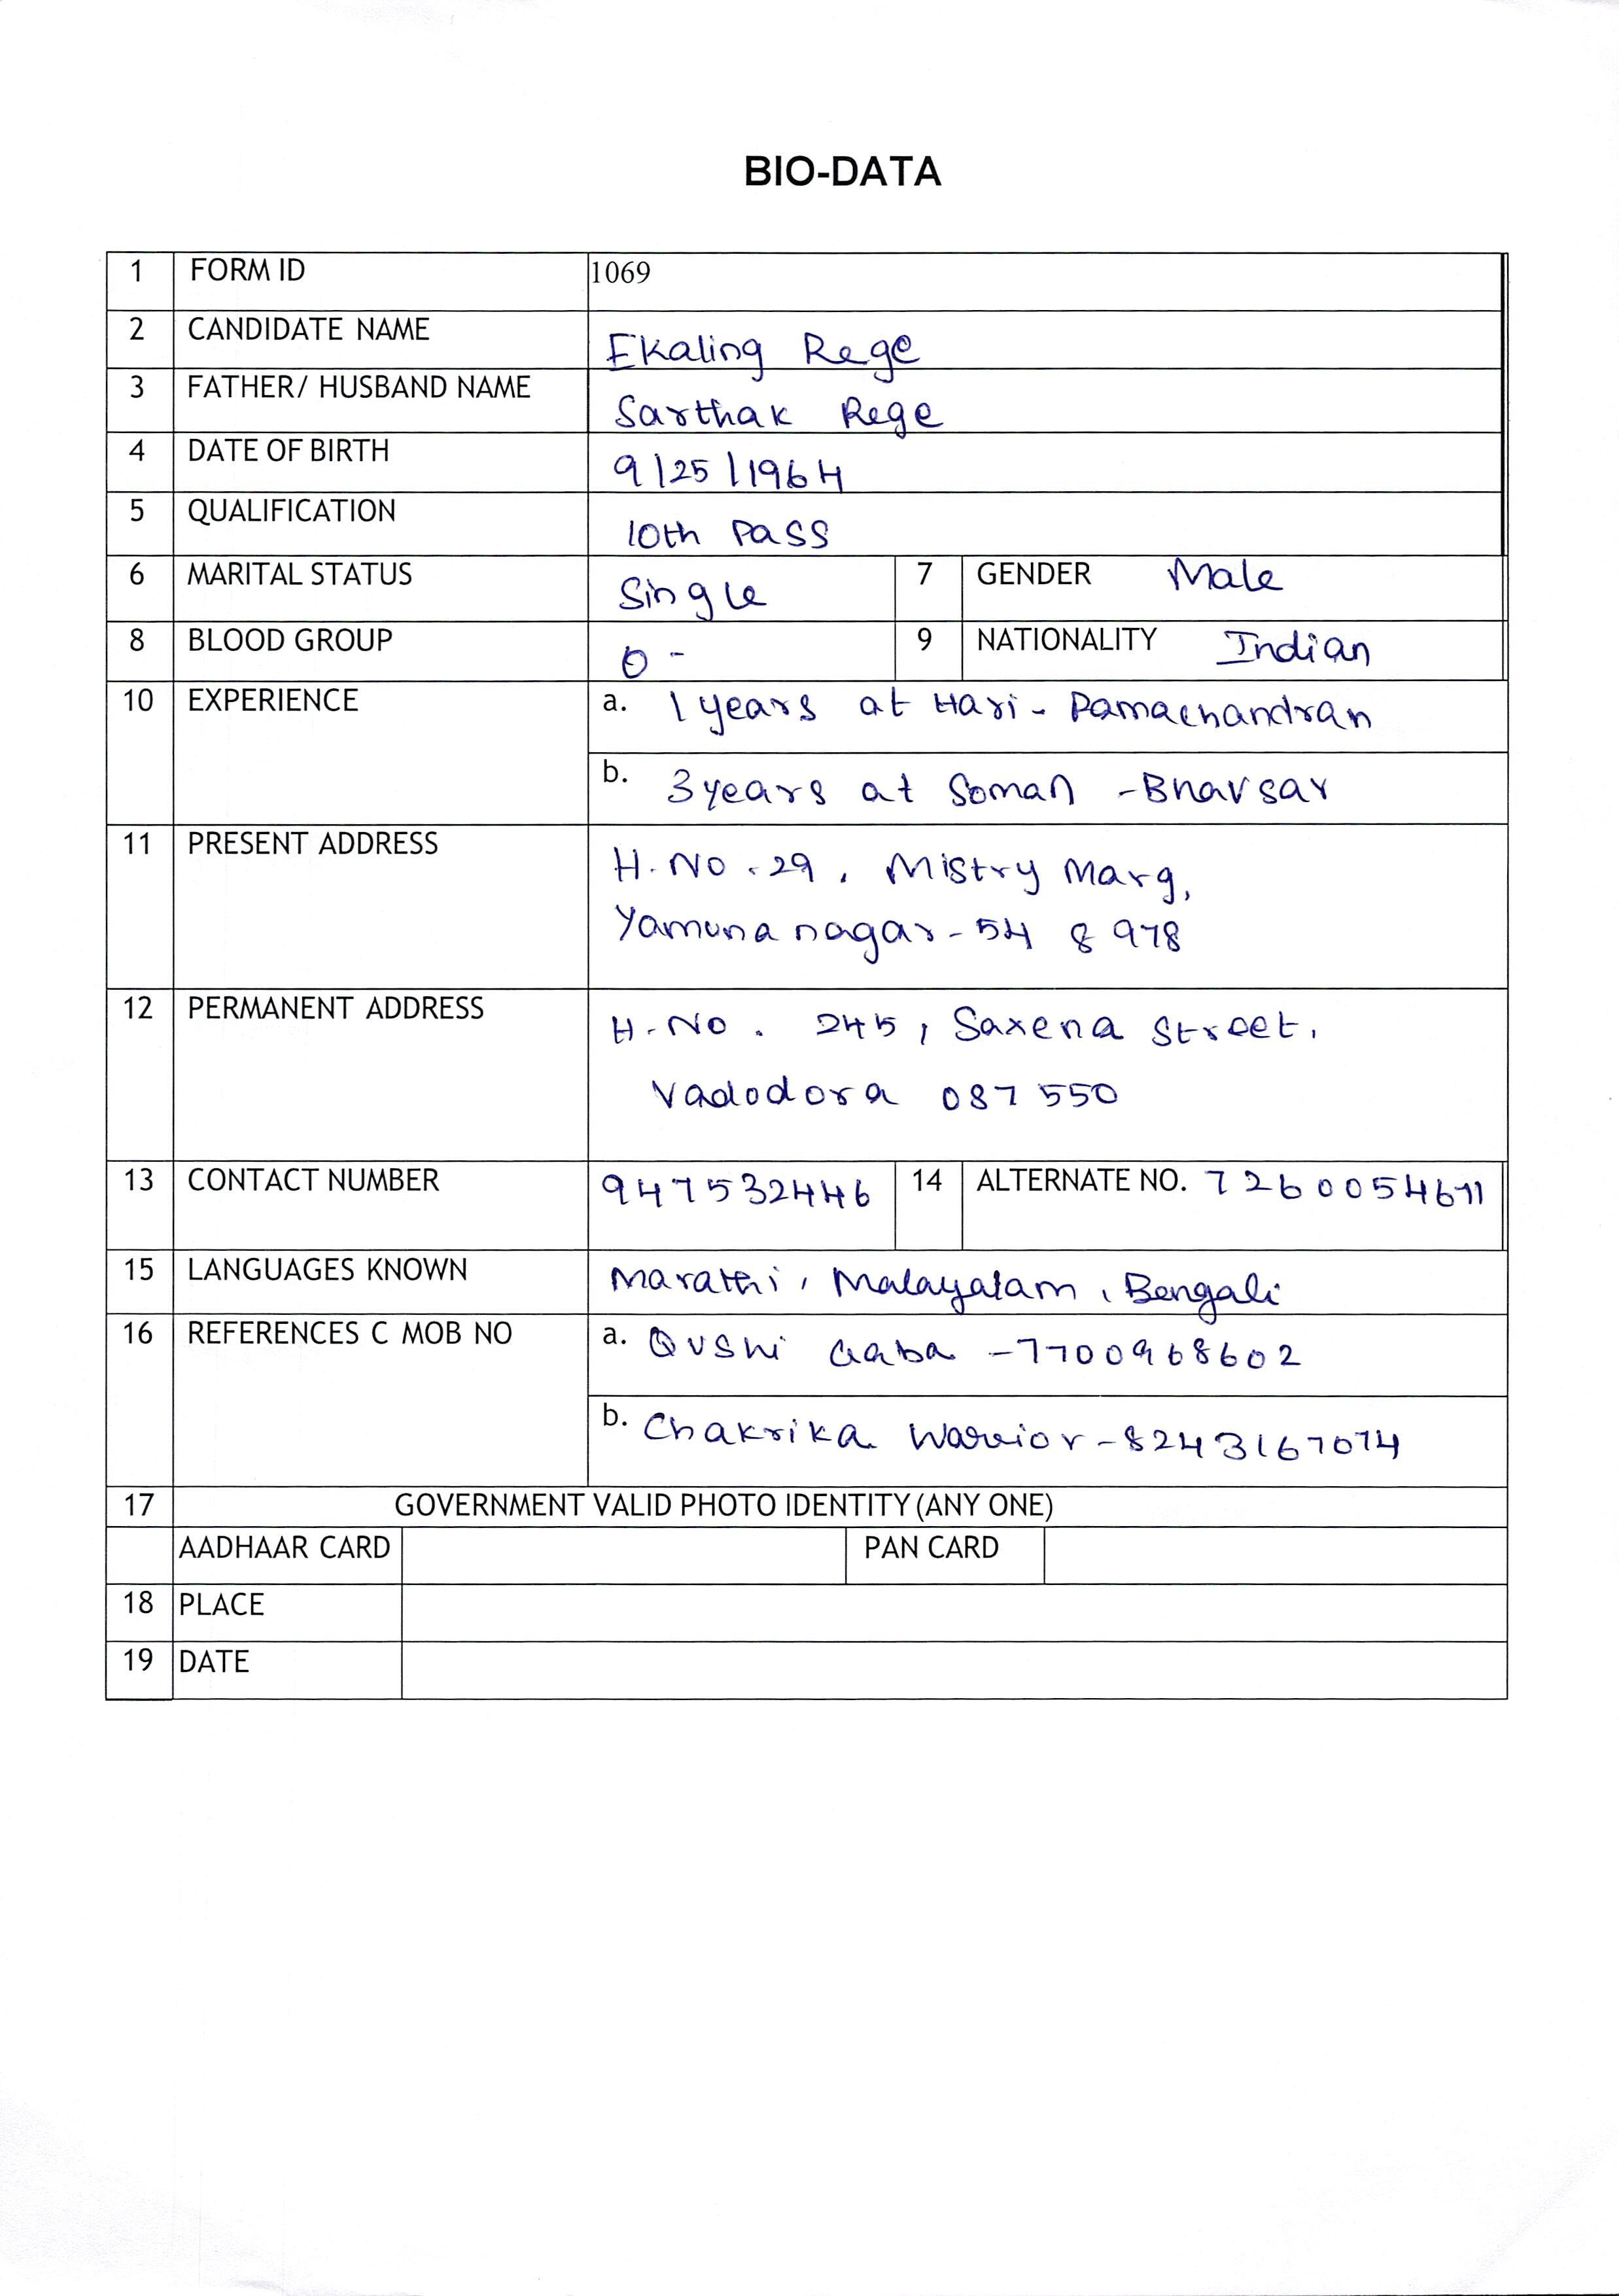 BIO-DATA
1 FORM ID 1069
2 CANDIDATE NAME Ekaling Rege
3 FATHER/ HUSBAND NAME Sarthak Rege
4 DATE OF BIRTH 9/25/1964
5 QUALIFICATION 10th Pass
6 MARITAL STATUS Single 7 GENDER Male
8 BLOOD GROUP O- 9 NATIONALITY Indian
10 EXPERIENCE a. 1 years at Hari- Ramachandran
b. 3 years at Soman -Bhavsar
11 PRESENT ADDRESS H.No.29, Mistry Marg,
Yamuna nagar-548978
12 PERMANENT ADDRESS H.No. 245, Saxena Street,
Vadodora 087550
13 CONTACT NUMBER 947532446 14 ALTERNATE NO. 72600546
15 LANGUAGES KNOWN Marathi, Malayalam, Bengali
16 REFERENCES C MOB NO a. Qushi Gaba -7700968602
b. Chakrika Warrior-8243167074
17 GOVERNMENT VALID PHOTO IDENTITY (ANY ONE)
AADHAAR CARD PAN CARD
18 PLACE
19 DATE